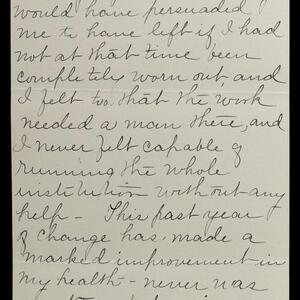 would have persuaded
me to have left if I had
not at that time been
completely worn out, and
I felt too, that the work
needed a man there, and
I never felt capable of
running the whole
institution without any
help – This past year
of change has made a
marked improvement in
my health – never was